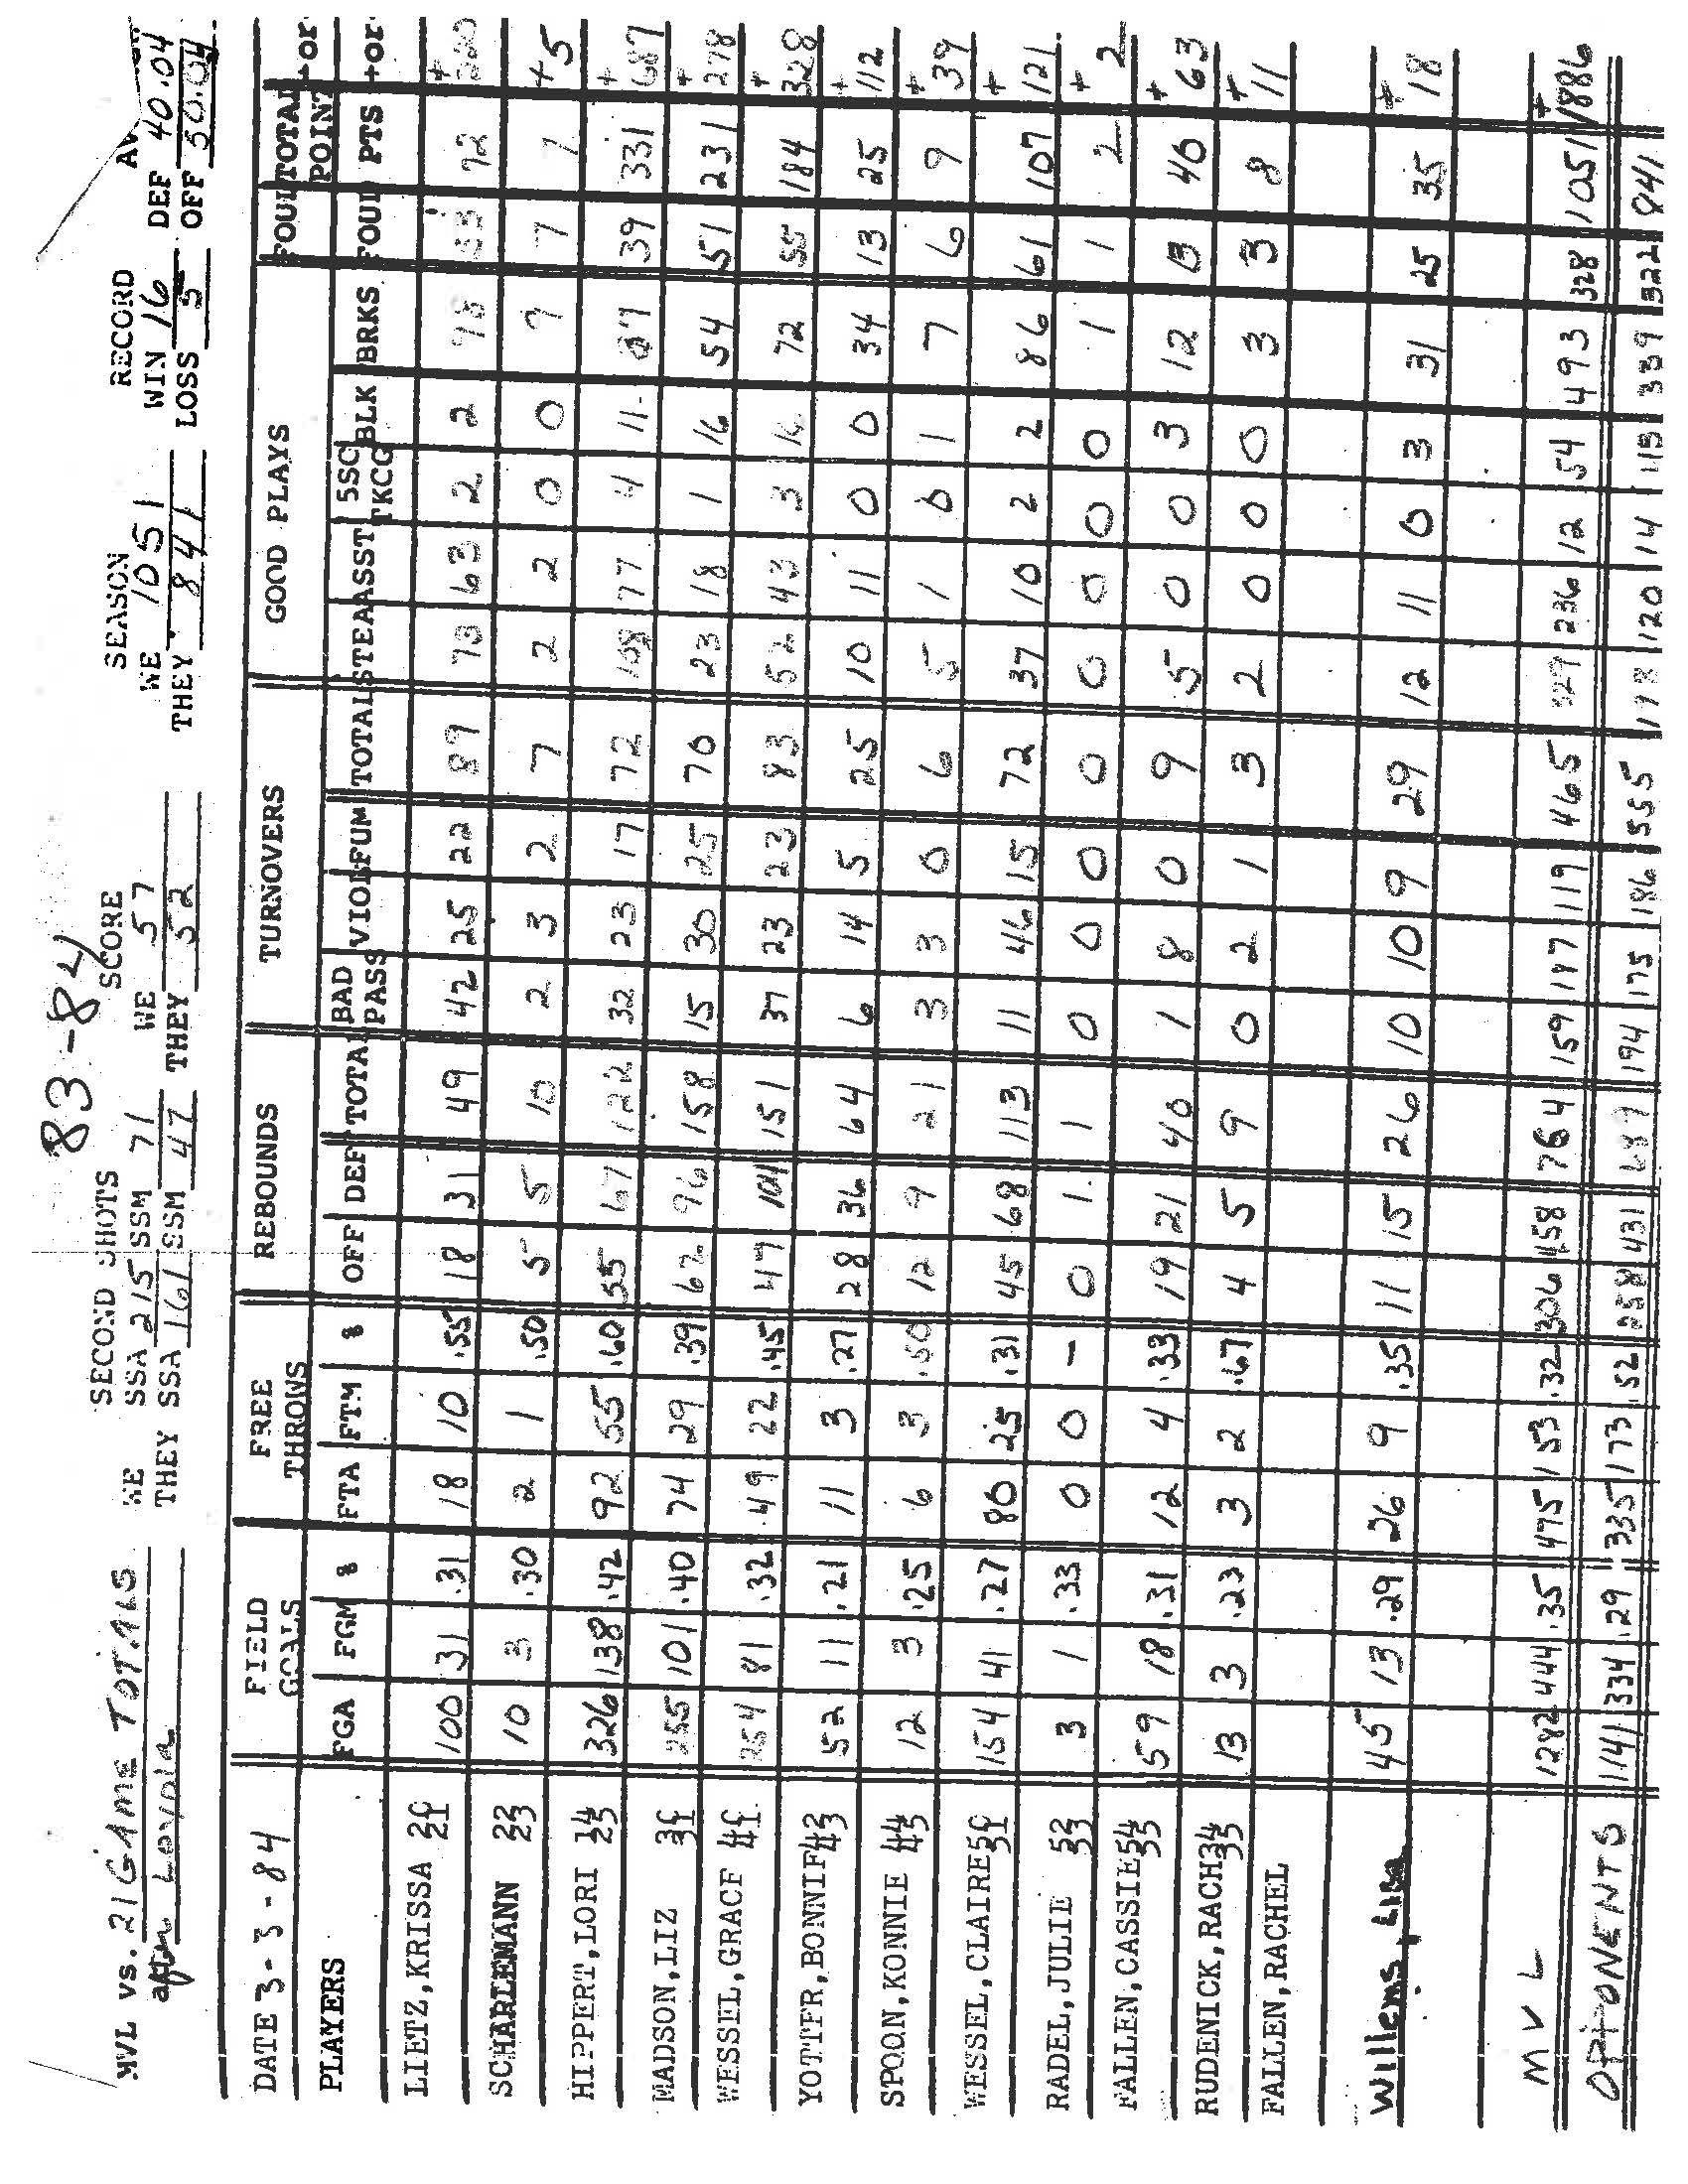 83-84
MVL vs. 21 GAME TOTALS WE SECOND SHOTS SCORE SEASON RECORD
SSA 215 SSM 71 WE 57 WE 1051 WIN 16 DEF 40.04
after Loyola THEY SSA 161 SSM 47 THEY 52 THEY 841 LOSS 5 OFF 50.04
DATE 3-3-84 FIELD GOALS FREE THROWS REBOUNDS TURNOVERS GOOD PLAYS FOUL TOTAL POINT +or
PLAYERS FGA FGM % FTA FTM % OFF DEF TOTAL BAD PASS VIOL FUM TOTAL STEA ASST 5SC TKCG BLK BRKS FOUL PTS +or
LIETZ,KRISSA 20 21 100 31 .31 18 10 .55 18 31 49 42 25 22 89 73 63 2 2 72
SCHARLEMANN 22 23 10 3 .30 2 1 .50 5 5 10 2 3 2 7 2 2 0 0 7 7 7 +5
HIPPERT,LORI 14 326 138 .42 92 55 .60 55 67 122 32 23 17 72 108 77 4 11 39 331 +687
MADSON,LIZ 255 101 .40 74 29 .39 62 96 158 15 30 25 70 23 18 1 16 54 51 231 +278
WESSEL,GRACE 254 81 .32 49 22 .45 47 104 151 37 23 23 83 52 43 3 72 55 184 +328
YOTTER,BONNIE 42 43 52 11 .21 11 3 .27 28 36 64 6 14 5 25 10 11 0 0 34 13 25 +112
SPOON,KONNIE 12 3 .25 6 3 .50 12 9 21 3 3 0 6 5 1 0 1 7 6 9 +39
WESSEL,CLAIRE 154 41 .27 80 25 .31 45 68 113 11 46 15 72 37 10 2 2 86 61 107 +121
RADEL,JULIE 52 53 3 1 .33 0 0 - 0 1 1 0 0 0 0 0 0 0 0 1 1 2 +2
FALLEN,CASSIE 54 59 18 .31 12 4 .33 19 21 40 1 8 0 9 5 0 0 3 12 13 40 +63
RUDENICK,RACH 34 13 3 .23 3 2 .67 4 5 9 0 2 1 3 2 0 0 0 3 3 8 +11
FALLEN,RACHEL
Willems, Lisa 45 13 .29 26 9 .35 11 15 26 10 10 9 29 12 11 0 3 31 25 35 +18
MVL 1282 444 .35 475 153 .32 306 458 764 159 187 119 465 329 236 12 54 493 328 1051 +1886
OPPONENTS 1141 334 .29 335 173 .52 258 431 689 194 175 186 555 178 120 14 45 339 322 841